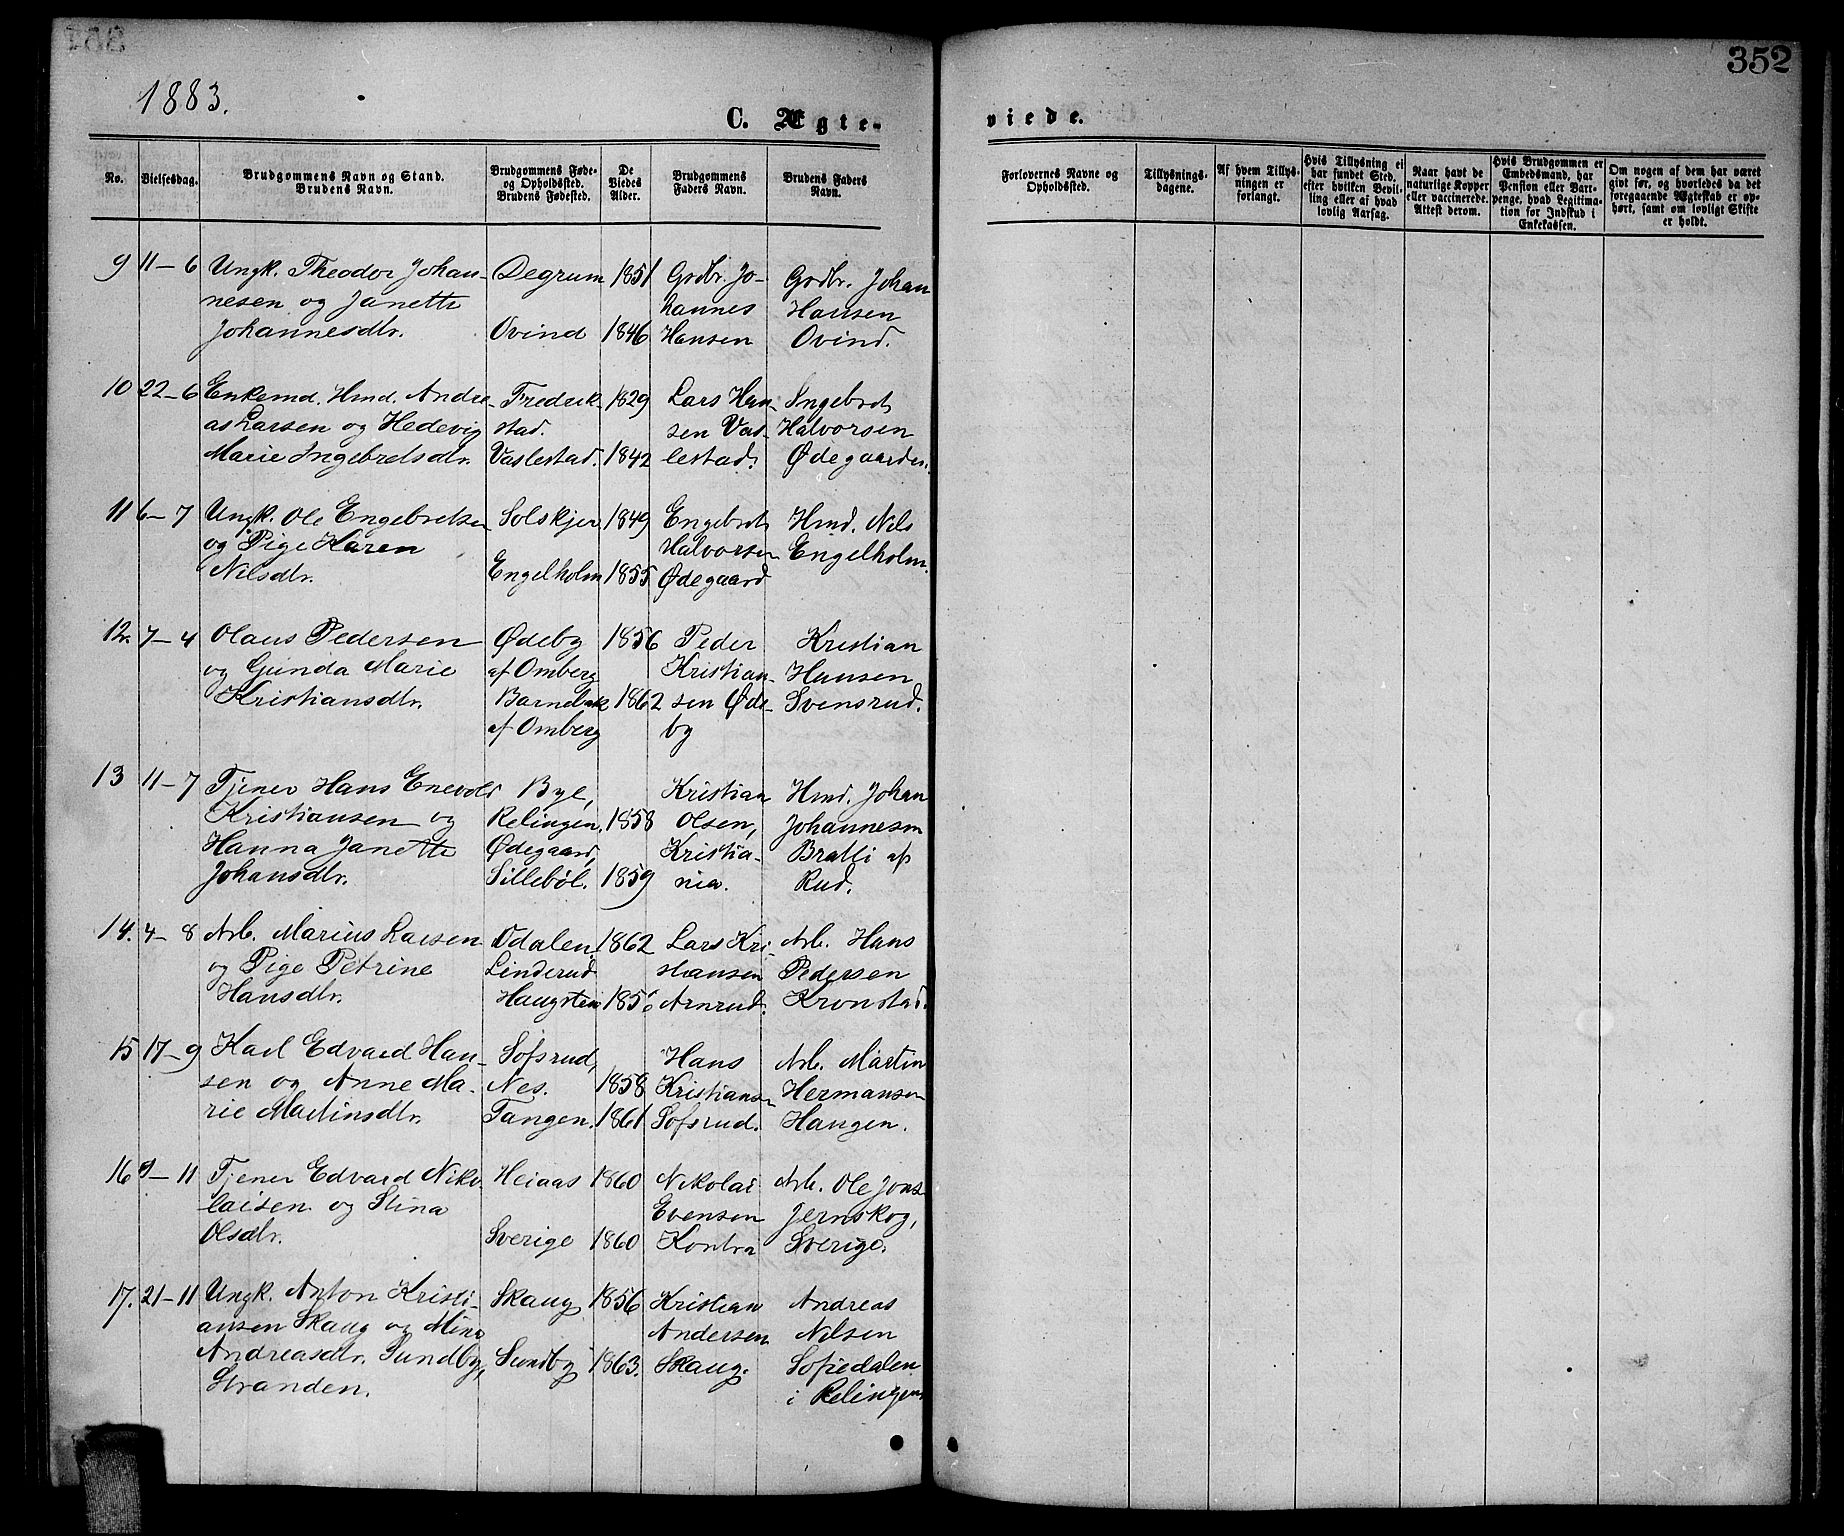 352
1883.
C. Ægte-
viede.
No.
Vielsesdag.
Brudgommens Navn og Stand.
Brudens Navn.
Brudgommens Føde-
og Opholdssted.
Brudens Fødested.
De
Viedes
Alder.
Brudgommens
Faders Navn.
Brudens Faders
Navn.
Forlovernes Navne og
Opholdssted.
Tillysnings-
dagene.
Af hvem Tillys-
ningen er
forlangt.
Hvis Tillysning ei
har fundet Sted,
efter hvilken Bevil-
ling eller af hvad
lovlig Aarsag.
Naar havt de
naturlige Kopper
eller vaccinerede.
Attest derom.
Hvis Brudgommen er
Embedsmand, har
Pension eller Var-
penge, hvad Legitima-
tion for Indskud i
Enkekassen.
Om nogen af dem har været
gift før, og hvorledes da det
foregaaende Ægteskab er op-
hørt, samt om lovligt Skifte
er holdt.
9 11-6 Ungk. Theodor Johan- Degrum 1851 Gdbr. Jo- Grdbr. Johan
nesen og Janette hannes Hansen
Johannesdtr. Ovind 1846 Hansen Ovind.
10 22-6 Enkemd. Hmd. Andre- Fredrik- 1829 Lars Han- Ingebret
as Larsen og Hedevig stad. sen Vas- Halvorsen
Marie Ingebretsdtr. Vaslestad. 1842 lestad. Ødegaarden.
11 6-7 Ungk. Ole Engebretsen Solskjer 1849 Engebret Hmd. Nils
og Pige Karen Halvorsen Engelholm.
Nilsdtr. Engelholm 1855 Ødegaard
12. 7-4 Olaus Pedersen Ødeby 1856 Peder Kristian
og Gunda Marie af Omberg Kristian- Hansen
Kristiansdtr. Barnebak 1862 sen Øde- Svensrud.
af Omberg by
13 11-7 Tjener Hans Enevold Bye, Kristian Hmd. Johan
Kristiansen og Relingen. 1858 Olsen, Johannesen
Hanna Janette Ødegaard, Kristia- Bratli af
Johansdtr. Sillebøl. 1859 nia. Rud.
14. 4-8 Arb. Marius Larsen Odalen 1862 Lars Kri- Arb. Hans
og Pige Petrine Linderud stiansen Pedersen
Hansdtr. Haugsten Arnrud. Kronstad.
15 17-9 Karl Edvard Han- Sofsrud, Hans Arb. Martin
sen og Anne Ma- Nes. 1858 Kristiansen Hermansen
rie Martinsdtr. Tangen. 1861 Sofsrud. Haugen.
16 9-11 Tjener Edvard Niko- Heiaas 1860 Nikolai Arb. Ole Jons
laisen og Stina Evensen Jernskog,
Olsdtr. Sverige 1860 Kontra Sverige.
17. 21-11 Ungk. Anton Kristi- Skaug 1856 Kristian Andreas
ansen Skaug og Mina Andersen Nilsen
Andreasdtr. Sundby, Sundby 1863. Skaug. Sofiedalen
Stranden. i Relingen